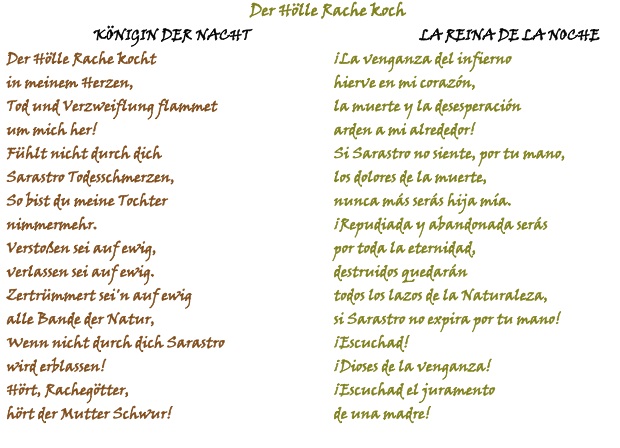 Der Hölle Rache Koch
KÖNIGIN DER NACHT
Der Hölle Rache kocht
in meinem Herzen,
Tod und Verzweiflung flammet
um mich her!
Fühlt nicht durch dich
Sarastro Todesschmerzen,
So bist du meine Tochter
nimmermehr.
Verstoßen sei auf ewig,
verlassen sei auf ewig.
Zertrümmert sei'n auf ewig
alle Bande der Natur,
Wenn nicht durch dich Sarastro
wird erblassen!
Hört, Rachegötter,
hört der Mutter Schwur!
LA REINA DE LA NOCHE
¡La venganza del infierno
hierve en mi corazón,
la muerte y la desesperación
arden a mi alrededor!
Si Sarastro no siente, por tu mano,
los dolores de la muerte,
nunca más serás hija mía.
¡Repudiada y abandonada serás
por toda la eternidad,
destruidos quedarán
todos los lazos de la Naturaleza,
si Sarastro no expira por tu mano!
¡Escuchad!
¡Dioses de la venganza!
¡Escuchad el juramento
de una madre!